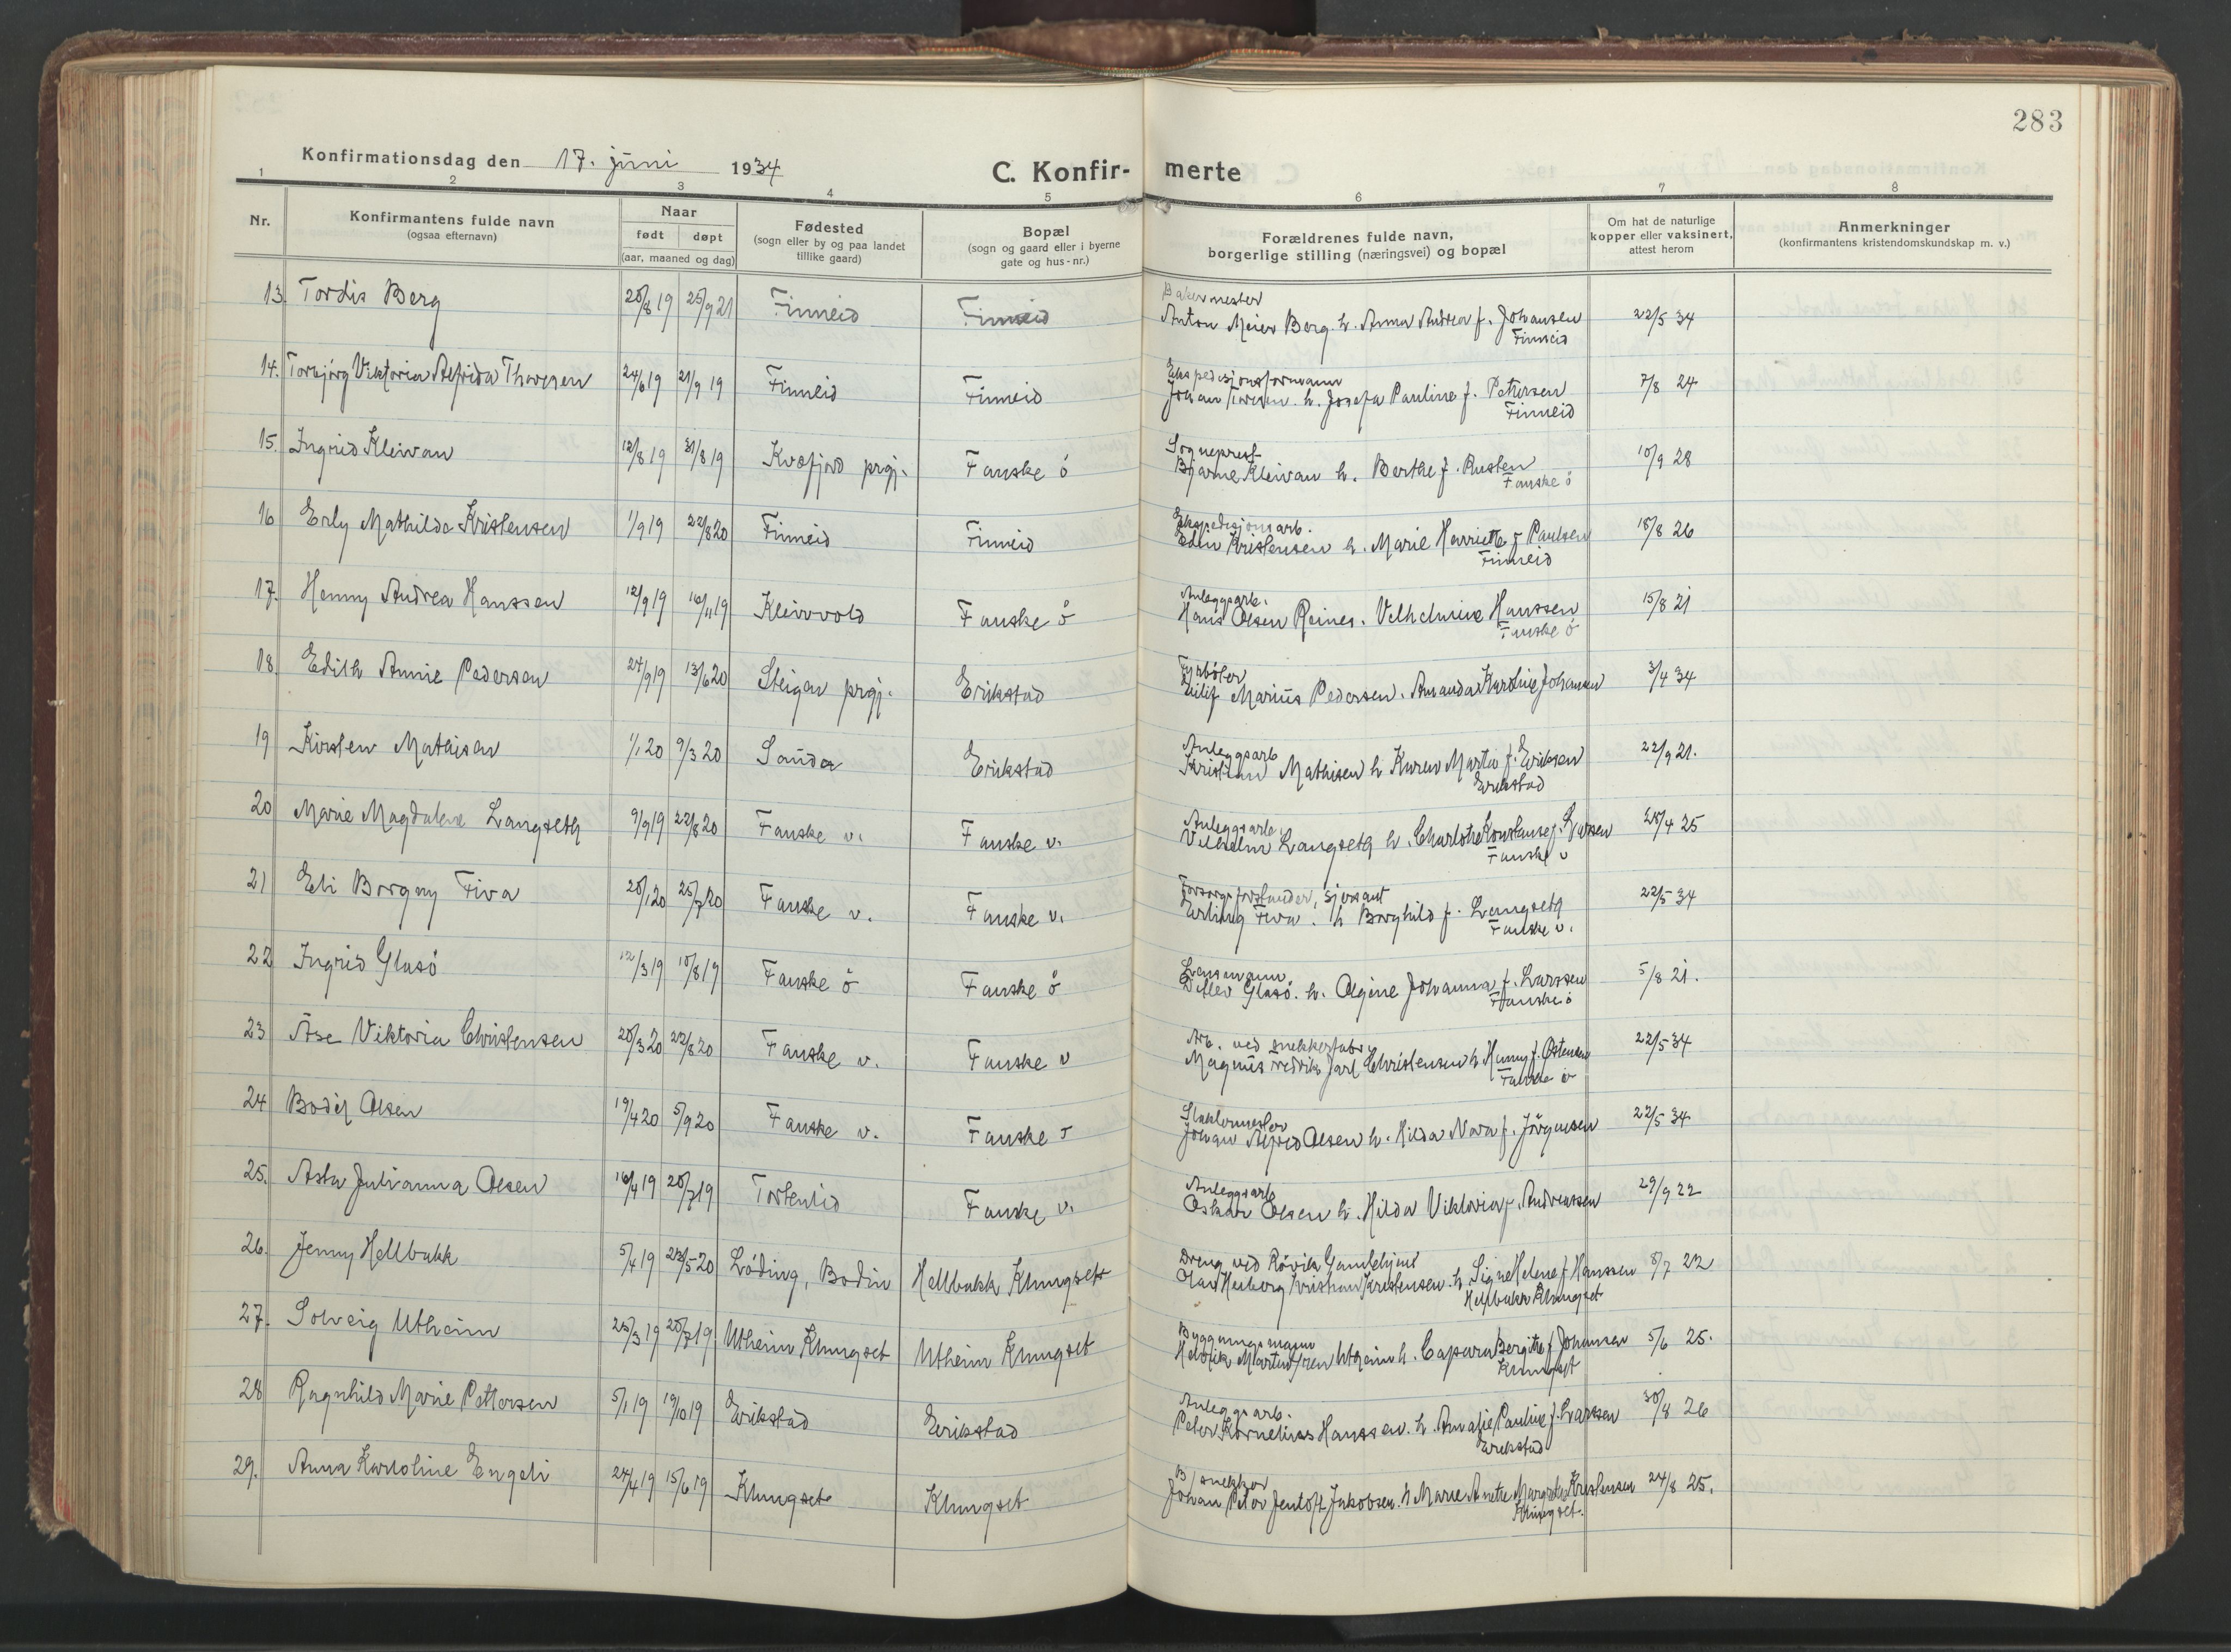 283
Konfirmationsdag den 17. juni 1934
C. Konfir- merte
1 2 3 4 5 6 7 8
Nr. Konfirmantens fulde navn (ogsaa efternavn) Naar født døpt (aar, maaned og dag) Fødested (sogn eller by og paa landet tillike gaard) Bopæl (sogn og gaard eller i byerne gate og hus-nr.) Forældrenes fulde navn, borgerlige stilling (næringsvei) og bopæl Om hat de naturlige kopper eller vaksinert, attest herom Anmerkninger (konfirmantens kristendomskundskap m. v.)
Bakermester
13. Tordis Berg 25/9 21 Finneid Finneid Anton Meier Berg. h. Anna Andrea f. Johansen 22/5 34
Finneid
Ekspedisjonsformann
14. Torbjørg Viktoria Alfrida Thoresen 24/6 19 21/9 19 Finneid Finneid Johan Toresen. h. Josefa Pauline f. Pettersen 7/8 24
Finneid
Sogneprest
15. Ingrid Kleivan 12/8 19 31/8 19 Kvæfjord prgj. Fauske ö Bjarne Kleivan h. Berthe f. Rusten 10/9 28
Fauske ö
Ekspedisjonsarb.
16 Erly Mathilde Kristensen 1/9 19 22/8 20 Finneid Finneid Kristensen h. Marie Henriette f. Paulsen 18/8 26
Finneid
Anleggsarb.
17. Henny Andrea Hanssen 12/9 19 16/11 19 Kleivvold Fauske ö Hans Olsen Reines. Velhelmine Hanssen 15/8 21
Fauske ö
Fyrböter
18. Edith Annie Pedersen 24/9 19 13/6 20 Steigen prgj. Erikstad Eilif Marius Pedersen. Amanda Karoline Johansen 3/4 34
Anleggsarb
19 Kirsten Mathisen 1/1 20 9/3 20 Sanda Erikstad Kristian Mathisen h Karen Marta f. Eriksen 22/9 21.
Erikstad
Anleggsarb.
20 Marie Magdalene Langseth 9/9 19 22/8 20 Fauske v. Fauske v. Vilhelm Langseth h. Charlotte Konstanse f. Larssen 25
Fauske v
Forsorgsforstander, sjersant
21 Eli Borgny Fiva 25/7 20 Fauske v. Fauske v. Erling Fiva. h Borghild f. Langseth 22/5 34
Fauske v.
Lensmann
22 Ingrid Glasö 12/3 19 10/8 19 Fauske ö Fauske ö Detlev Glasö. h. Olgine Johanna f. Larssen 5/8 21.
Fauske ö
Arb. ved snekkerfabr.
23 Åse Viktoria Christensen 20/3 20 22/8 20 Fauske v. Fauske v Magnus Fredrik Jarl Christensen h Hanny f. Østensen 22/5 34
Fauske
Slaktermester
24 Bodil Olsen 19/4 20 5/9 20 Fauske v. Fauske v Johan Alfred Olsen h. Hilda Nora f. Jörgensen 22/5 34
Anleggsarb
25. Asta Julianna Olsen 16/4 19 20/7 19 Tortenlid Fauske v. Oskar Olsen h. Hilda Viktoria f. Andreassen 29/9 22
Dreng ved Røvik Gamlehjem
26. Jenny Hellbakk 5/4 19 23/5 20 Löding, Bodin Hellbakk Klungset Olav Heiberg Kristian Kristensen. h. Signe Helene f Hanssen 8/7 22
Hellbakk Klungset
Bygningsmann
27. Solveig Utheim 25/3 19 20/7 19 Utheim Klungset Utheim Klungset Martin Utheim h. Bergitte f Johansen 5/6 25.
Klungset
Anleggsarb.
28 Ragnhild Marie Pettersen 5/1 19 19/10 19 Erikstad Erikstad Peter Kornelius Hanssen. h. Amalie Pauline f. Larssen 30/8 26
Erikstad
B/snekker
29. Anna Karoline Engeli 24/4 19 15/6 19 Klungset Klungset Johan Peter Jentoft Jakobsen. h Marie Anette Margrete Kristensen 24/8 25.
Klungset.